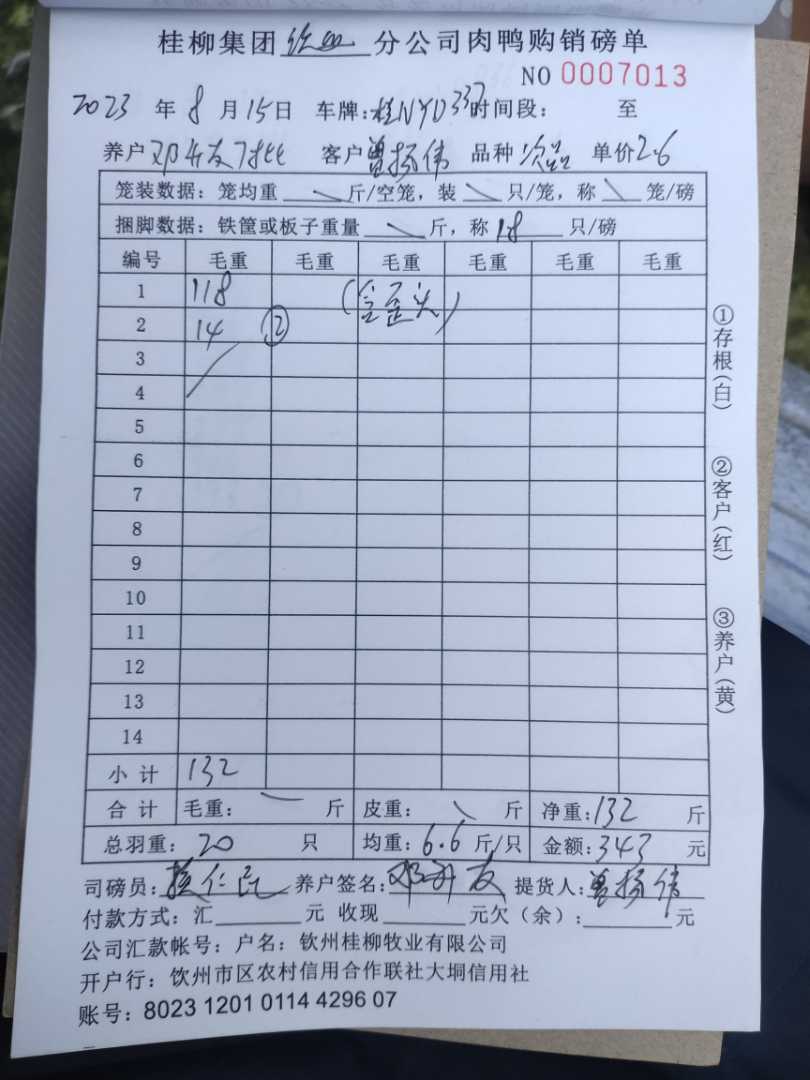 桂柳集团 分公司肉鸭购销磅单
NO 0007013
2023 年 8 月 15日 车牌:桂NYD337 时间段: 至
养户 邓升友 客户 曾杨伟 品种 次品 单价 2.6
笼装数据: 笼均重 斤/空笼, 装 只/笼, 称 笼/磅
捆脚数据: 铁筐或板子重量 斤, 称 18 只/磅
编号 毛重 毛重 毛重 毛重 毛重 毛重
1 118 (含歪头)
2 14 ②
3
4
5
6
7
8
9
10
11
12
13
14
小计 132
合计 毛重: 斤 皮重: 斤 净重: 132 斤
总羽重: 20 只 均重: 6.6 斤/只 金额: 343 元
司磅员: 仁 养户签名: 邓升友 提货人: 曾杨伟
付款方式: 汇 元 收现 元欠(余): 元
公司汇款帐号: 户名: 钦州桂柳牧业有限公司
开户行: 钦州市区农村信用合作联社大垌信用社
账号: 8023 1201 0114 4296 07
①存根(白)
②客户(红)
③养户(黄)